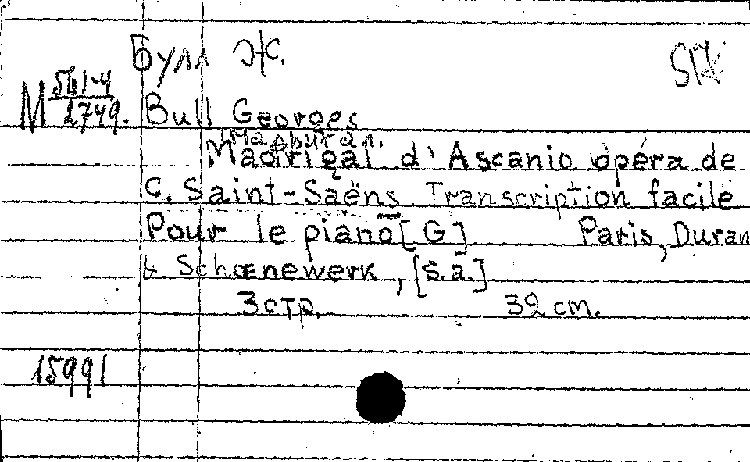 Булл Ж.
М 561-4
2749.
Bull Georges
Мадригал.
Madrigal d'Ascanio opéra de
C. Saint-Saëns Transcription facile
Pour le piano [G] Paris, Duran
& Schœnewerk, [s.a.]
3 стр. 32 cm.
15991